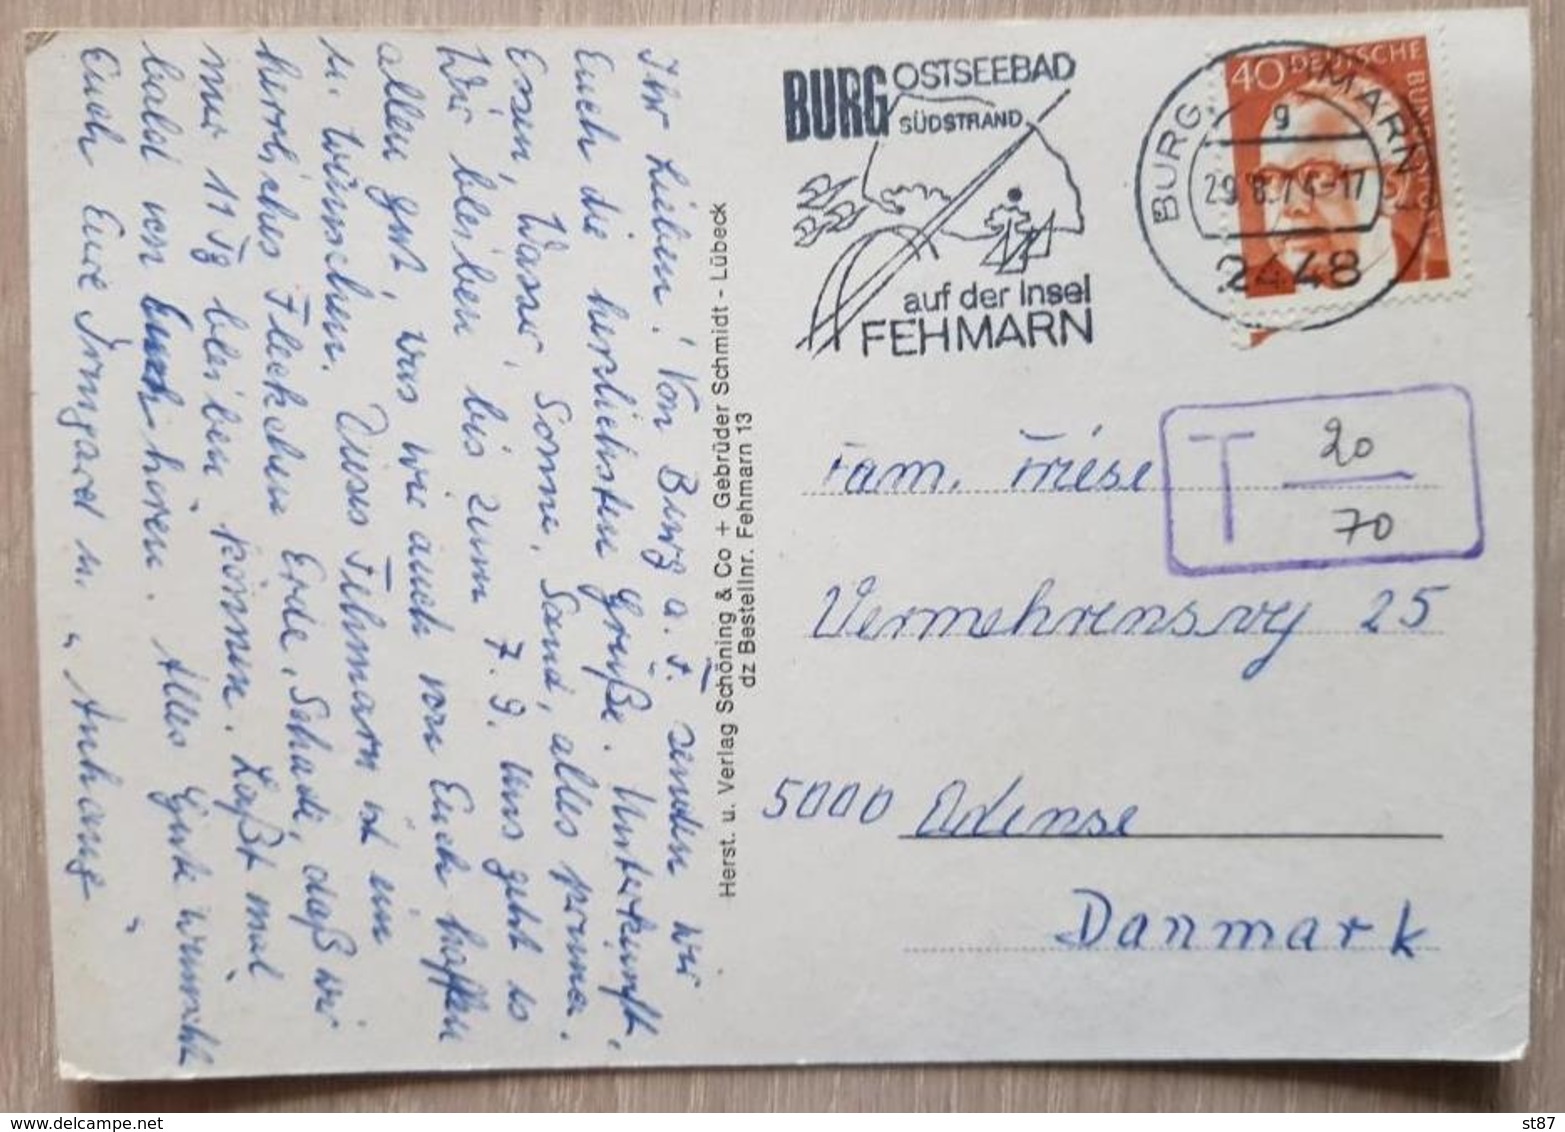 Ihr Lieben! Von Burg a. F. senden wir
Euch die herlichsten Grüße. Unterkunft,
Essen, Wasser, Sonne, Sand, alles prima.
Wir bleiben bis zum 7.9. Uns geht es
allen gut, was wir auch von Euch hoffen
u. wünschen. Dieses Fehmarn ist ein
herrliches Fleckchen Erde, Schade, daß wir
nur 11 Tg bleiben können. Laßt mal
bald von Euch hören. Alles Gute wünscht
Euch Eure Irmgard u. „Anhang“
Herst. u. Verlag Schöning & Co + Gebrüder Schmidt - Lübeck
dz Bestellnr. Fehmarn 13
BURG OSTSEEBAD
SÜDSTRAND
auf der Insel
FEHMARN
BURG
MARN 1
g
29.8.74-17
2448
40 DEUTSCHE BUNDESPOST
T 20
70
Fam. Friese
Vermehrensvej 25
5000 Odense
Danmark
st87